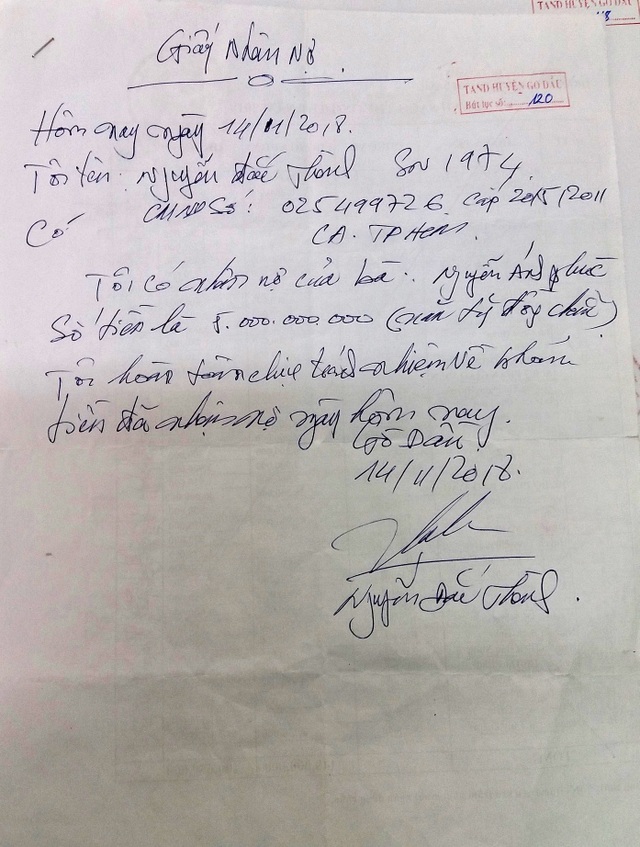 TAND HUYỆN GÒ DẦU
Giấy Nhận Nợ
TAND HUYỆN GÒ DẦU
Bút lục số: 120
Hôm nay ngày 14/11/2018.
Tôi tên: Nguyễn Đắc Thành Sn 1974
CMND Số: 025499726. Cấp 2015/2011
Có CA. TPHCM.
Tôi có nhận nợ của bà: Nguyễn Ánh
Số tiền là 5.000.000.000 (năm tỷ đồng chẵn)
Tôi hoàn toàn chịu trách nhiệm về khoản
tiền đã nhận nợ ngày hôm nay.
Gò Dầu
14/11/2018.
Nguyễn Đắc Thành.